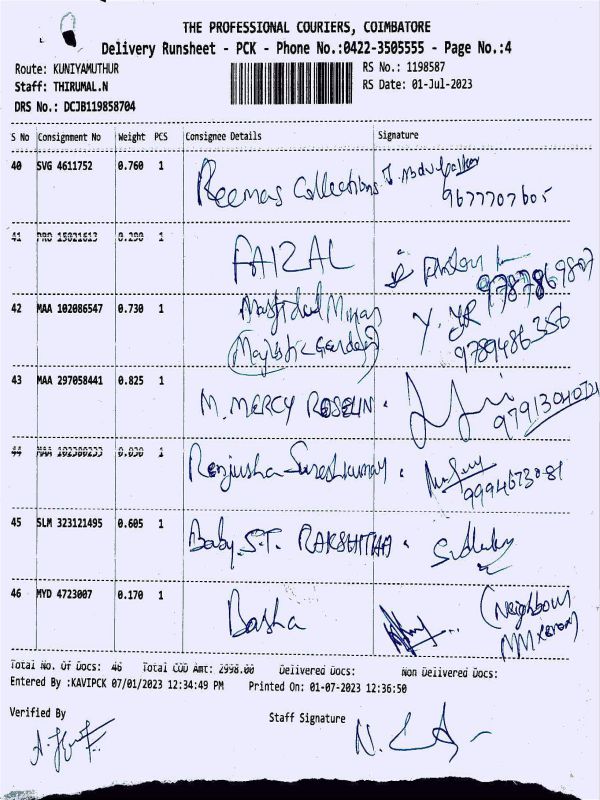 THE PROFESSIONAL COURIERS, COIMBATORE
Delivery Runsheet - PCK - Phone No.:0422-3505555 - Page No.:4
Route: KUNIYAMUTHUR RS No.: 1198587
Staff: THIRUMAL.N RS Date: 01-Jul-2023
DRS No.: DCJB119858704
S No Consignment No Weight PCS Consignee Details Signature
40 SVG 4611752 0.760 1 Reemas Collections
9677707605
41 PRO 15021613 0.290 1 FAIZAL
9787869807
42 MAA 102086547 0.730 1 Masjidul Minar
(Majestic Gardens)
9789486356
43 MAA 297058441 0.825 1 M. MERCY ROSELIN
9791304072
44 MAA 102300233 0.030 1 Renjusha Sureshkumar
9994673081
45 SLM 323121495 0.605 1 Baby. S.T. RAKSHITHA
46 MYD 4723007 0.170 1 Basha (Neighbour
Total No. Of Docs: 46 Total COD Amt: 2998.00 Delivered Docs: Non Delivered Docs:
Entered By :KAVIPCK 07/01/2023 12:34:49 PM Printed On: 01-07-2023 12:36:50
Verified By Staff Signature